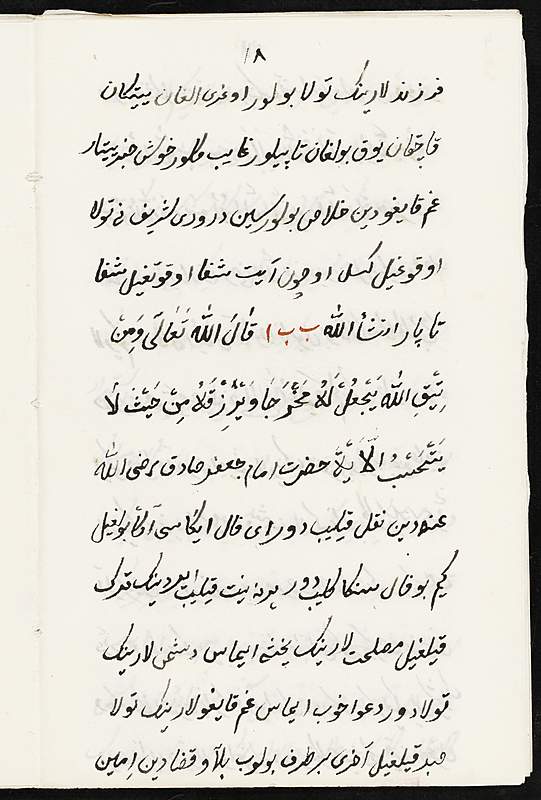 ١٨
فرزندلارینک تولا بولور اوغری الغان ییتیکان
قاچقان یوق بولغان تاپیلور غایب کلور خوش خبر ییتار
غم قایغودین خلاص بولورسین درودی شریف نی تولا
اوقوغیل کسل اوچون آیت شفا اوقوتغیل شفا
تاپار انشأ الله ب ب ا قَالَ الله تَعَالَی وَمِنْ
یَتَّقِ الله یَجْعَلْ لَهُ مَخْرَجَا وَیَرْزِقَهُ مِنْ حَیْثُ لَا
یَحْتَسِبُ حضرت امام جعفر صادق رضی الله
عنه دین نقل قیلیب دورای فال ایکاسی آکاه بولغیل
کیم بو فال سنکا کلیب دور نیت قیلیب ترک
قیلغیل مصلحت لارینک یخشه ایماس دشمن لارینک
تولا دور دعوا خوب ایماس غم قایغولارینک تولا
صبر قیلغیل آخری برطرف بولوب بلا و قضادین امین